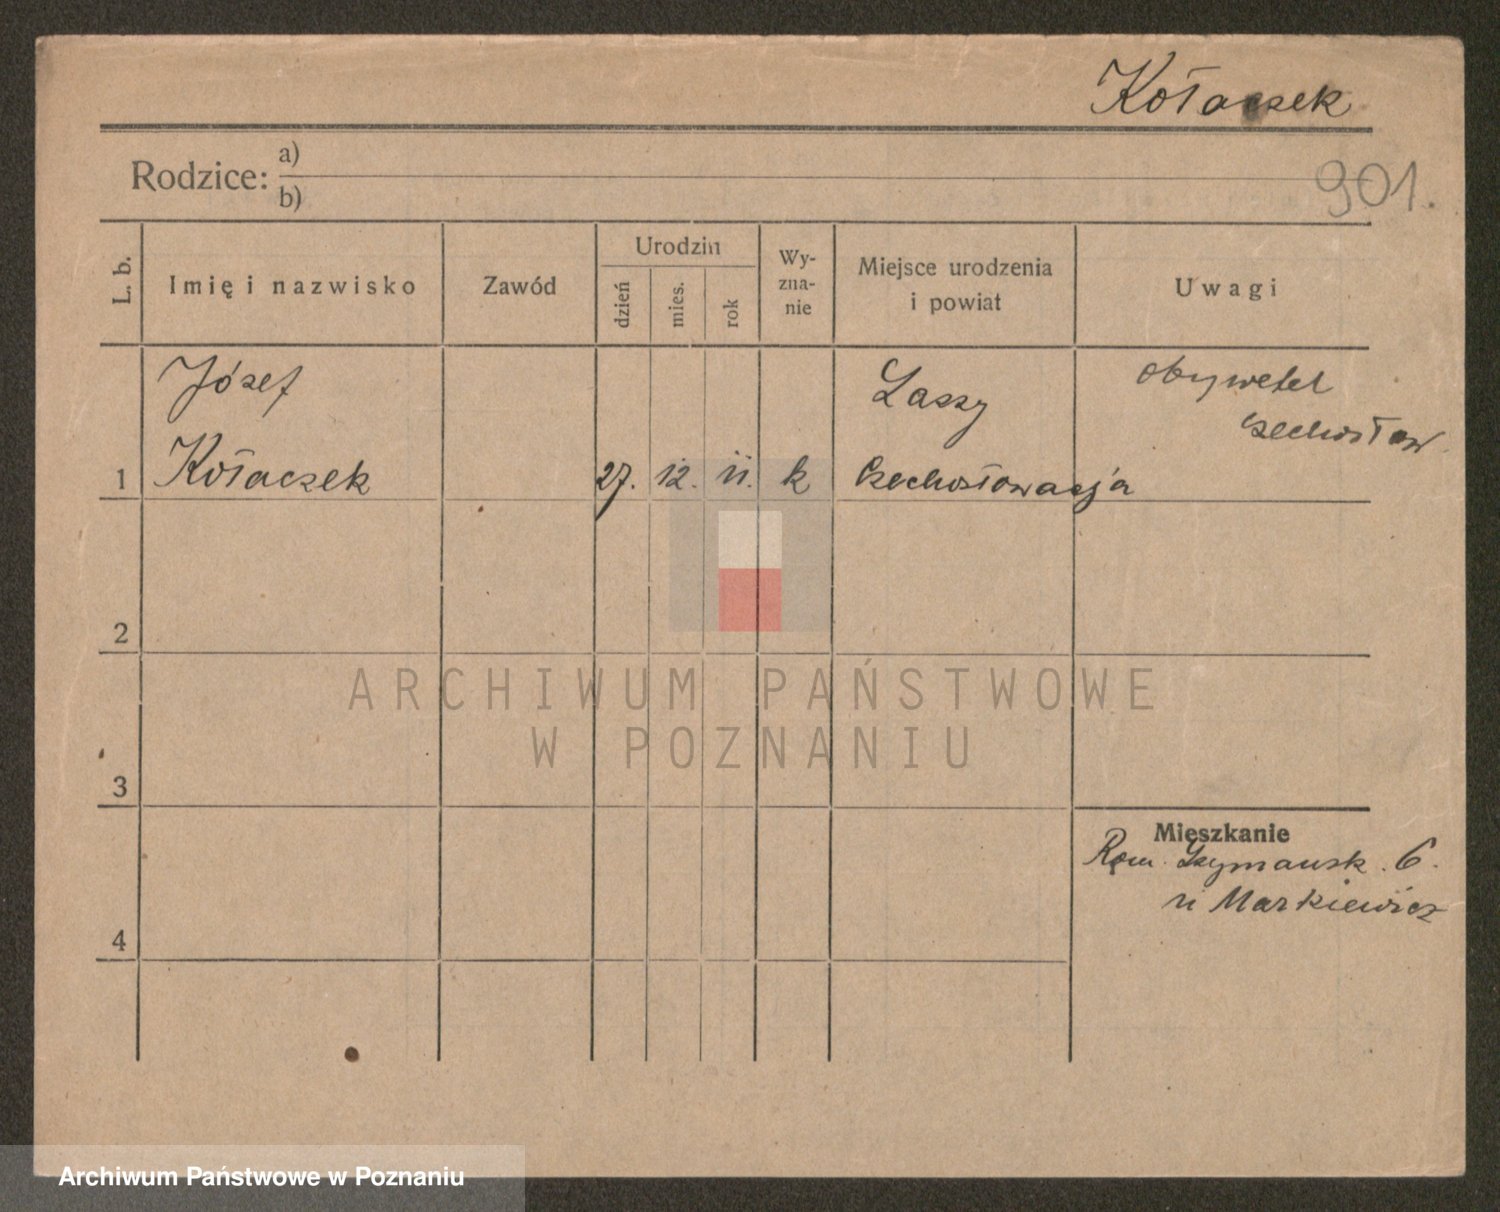 Kołaczek
Rodzice: a)
b)
901.
L. b.
Imię i nazwisko
Zawód
Urodzin
dzień
mies.
rok
Wy-
zna-
nie
Miejsce urodzenia
i powiat
Uwagi
Józef
Kołaczek
1
27. 12. 11. k
Laszy
Czechosłowacja
obywatel
czechosłow.
2
3
4
Mieszkanie
Rom. Szymańsk. 6.
u Markiewicz
ARCHIWUM PAŃSTWOWE
W POZNANIU
Archiwum Państwowe w Poznaniu